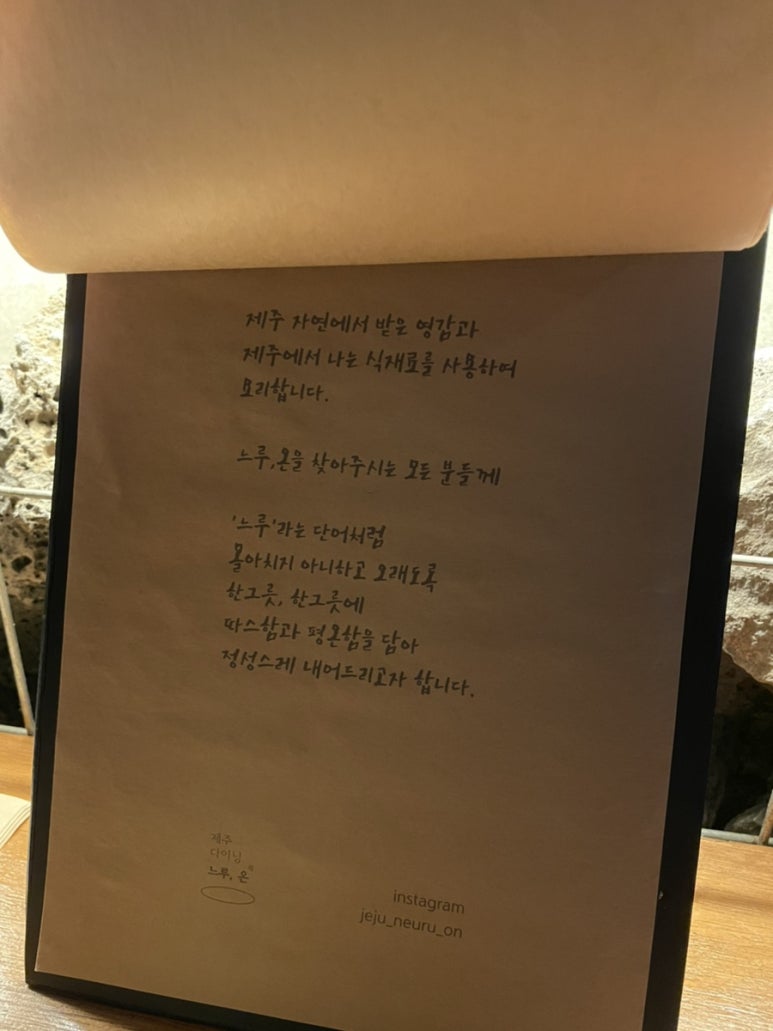 제주 자연에서 받은 영감과
제주에서 나는 식재료를 사용하여
요리합니다.
느루,온을 찾아주시는 모든 분들께
'느루'라는 단어처럼
몰아치지 아니하고 오래도록
한그릇, 한그릇에
따스함과 평온함을 담아
정성스레 내어드리고자 합니다.
제주
다이닝
느루, 온
instagram
jeju_neuru_on